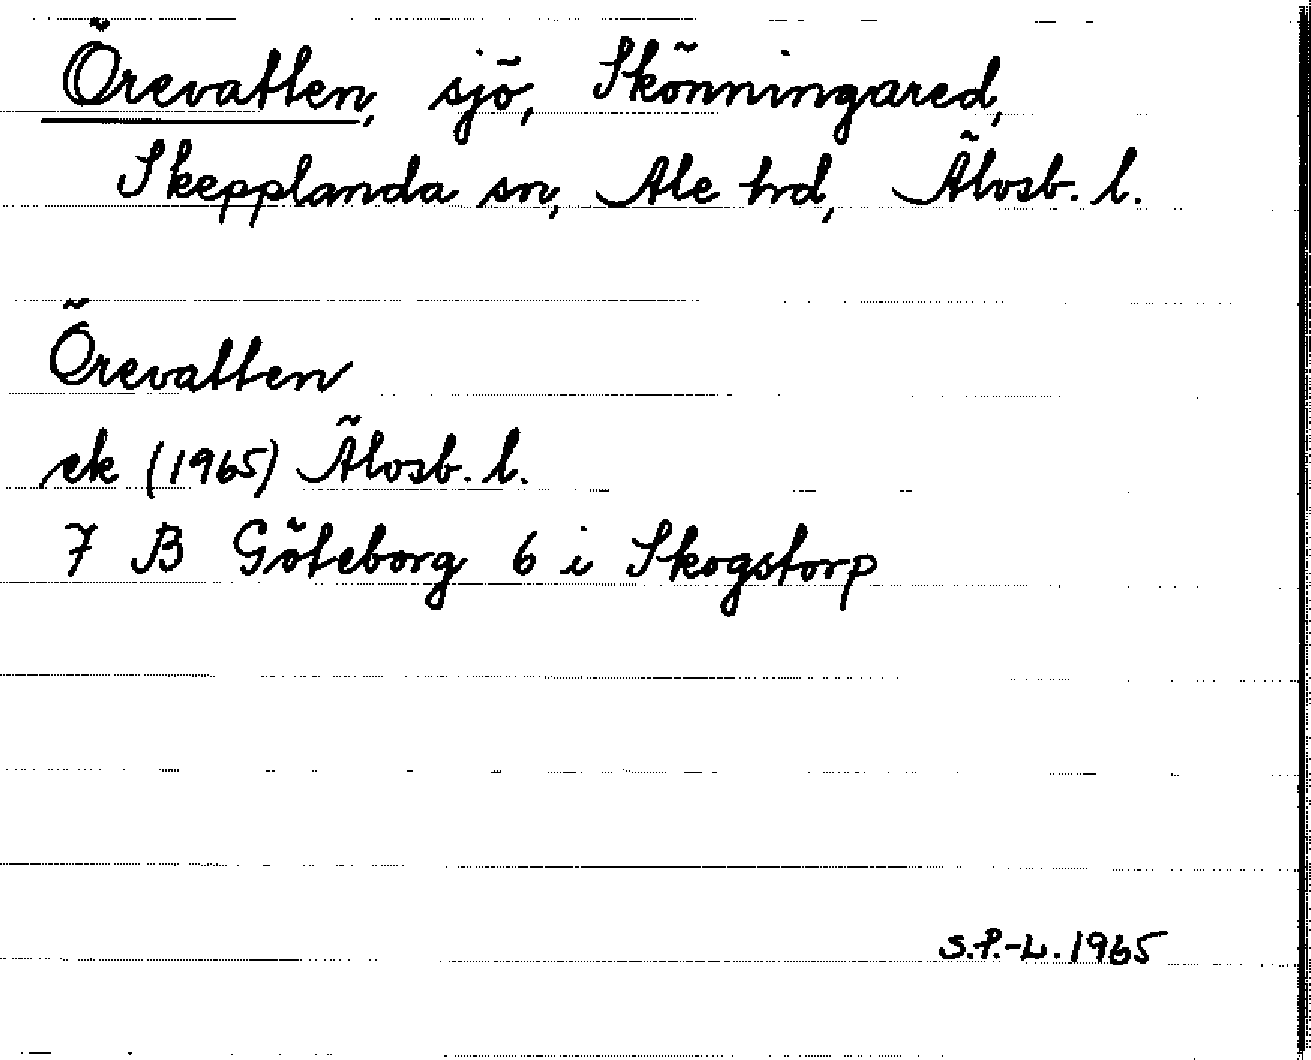 Örevatten, sjö, Skönningared,
Skepplanda sn, Ale hrd, Älvsb. l.
Örevatten
ek (1965) Älvsb. l.
7 B Göteborg 6 i Skogstorp
S.P.-L. 1965